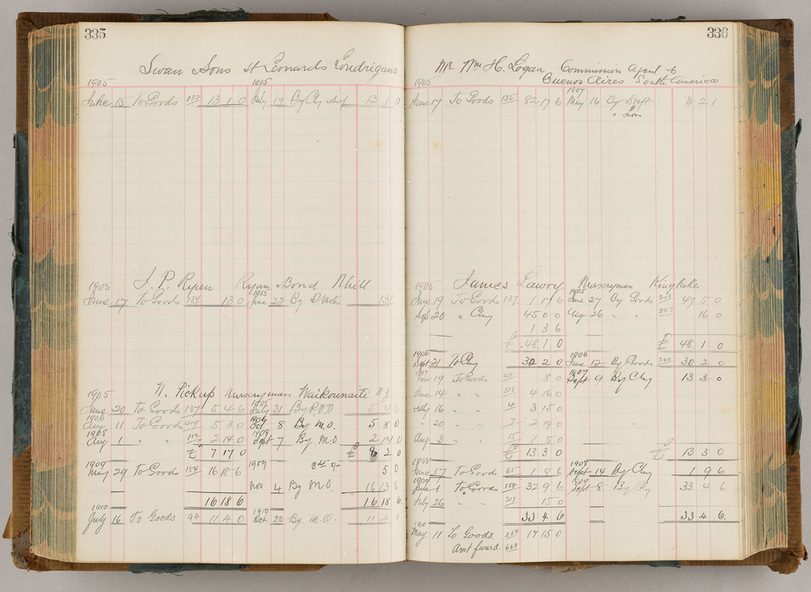 335
Swan & Sons St Leonards Londrigans
1905
June 15 To Goods 13 1 0 July 17 By Chq 13 1 0
1905 J. P. Ryan Ryan & Bond Nhill
June 17 To Goods 189 13 0 June 22 By 13
1905 N. Pickup Nurseryman Waikounaite N.Z.
June 20 To Goods 187 5 4 6 July 31 By P.O.O 5 4 6
1906 1906
Aug 11 To Goods 5 8 0 Oct 8 By M.O. 5 8 0
1908 1908
Aug 1 " " 2 14 0 Sept 7 By M.O. 2 14 0
£ 7 17 0 £ 8 2 0
1909 1909
May 29 To Goods 154 16 18 6 5 0
Nov 4 By M.O. 16 13 6
16 18 6 16 18 6
1910 1910
July 16 To Goods 94 11 4 0 Oct 20 By M.O. 11
336
Mr Wm H. Logan, Commission Agent &
Buenos Aires South America
1905 1907
June 17 To Goods 135 82 17 6 May 16 By Draft 8 2 1
" Loss
1905 James Lawry Nurseryman Kinglake
1905
June 19 To Goods 187 1 17 6 June 27 By Goods 47 5 0
Sep 20 " Chq 45 0 0 Aug 26 " " 16 0
1 3 6
£ 48 1 0 £ 48 1 0
1906 1906
Sept 21 To Chq 30 2 0 June 12 By Goods 30 2 0
1907 1907
19 To Goods 8 0 Sept 9 By Chq 13 3 0
June 14 " " 4 16 0
July 16 " " 3 15 0
" 20 " " 2 19 0
Aug 3 " " 1 5 0
£ 13 3 0 £ 13 3 0
1908 1908
June 17 To Goods 65 1 9 6 Sept 14 By Chq 1 9 6
1909 1909
June 1 To Goods 158 32 9 6 Sept 8 By Chq 33 4 6
July 26 " " 15 0
33 4 6 33 4 6
1910
May 11 To Goods 17 15 0
Amt forward 669